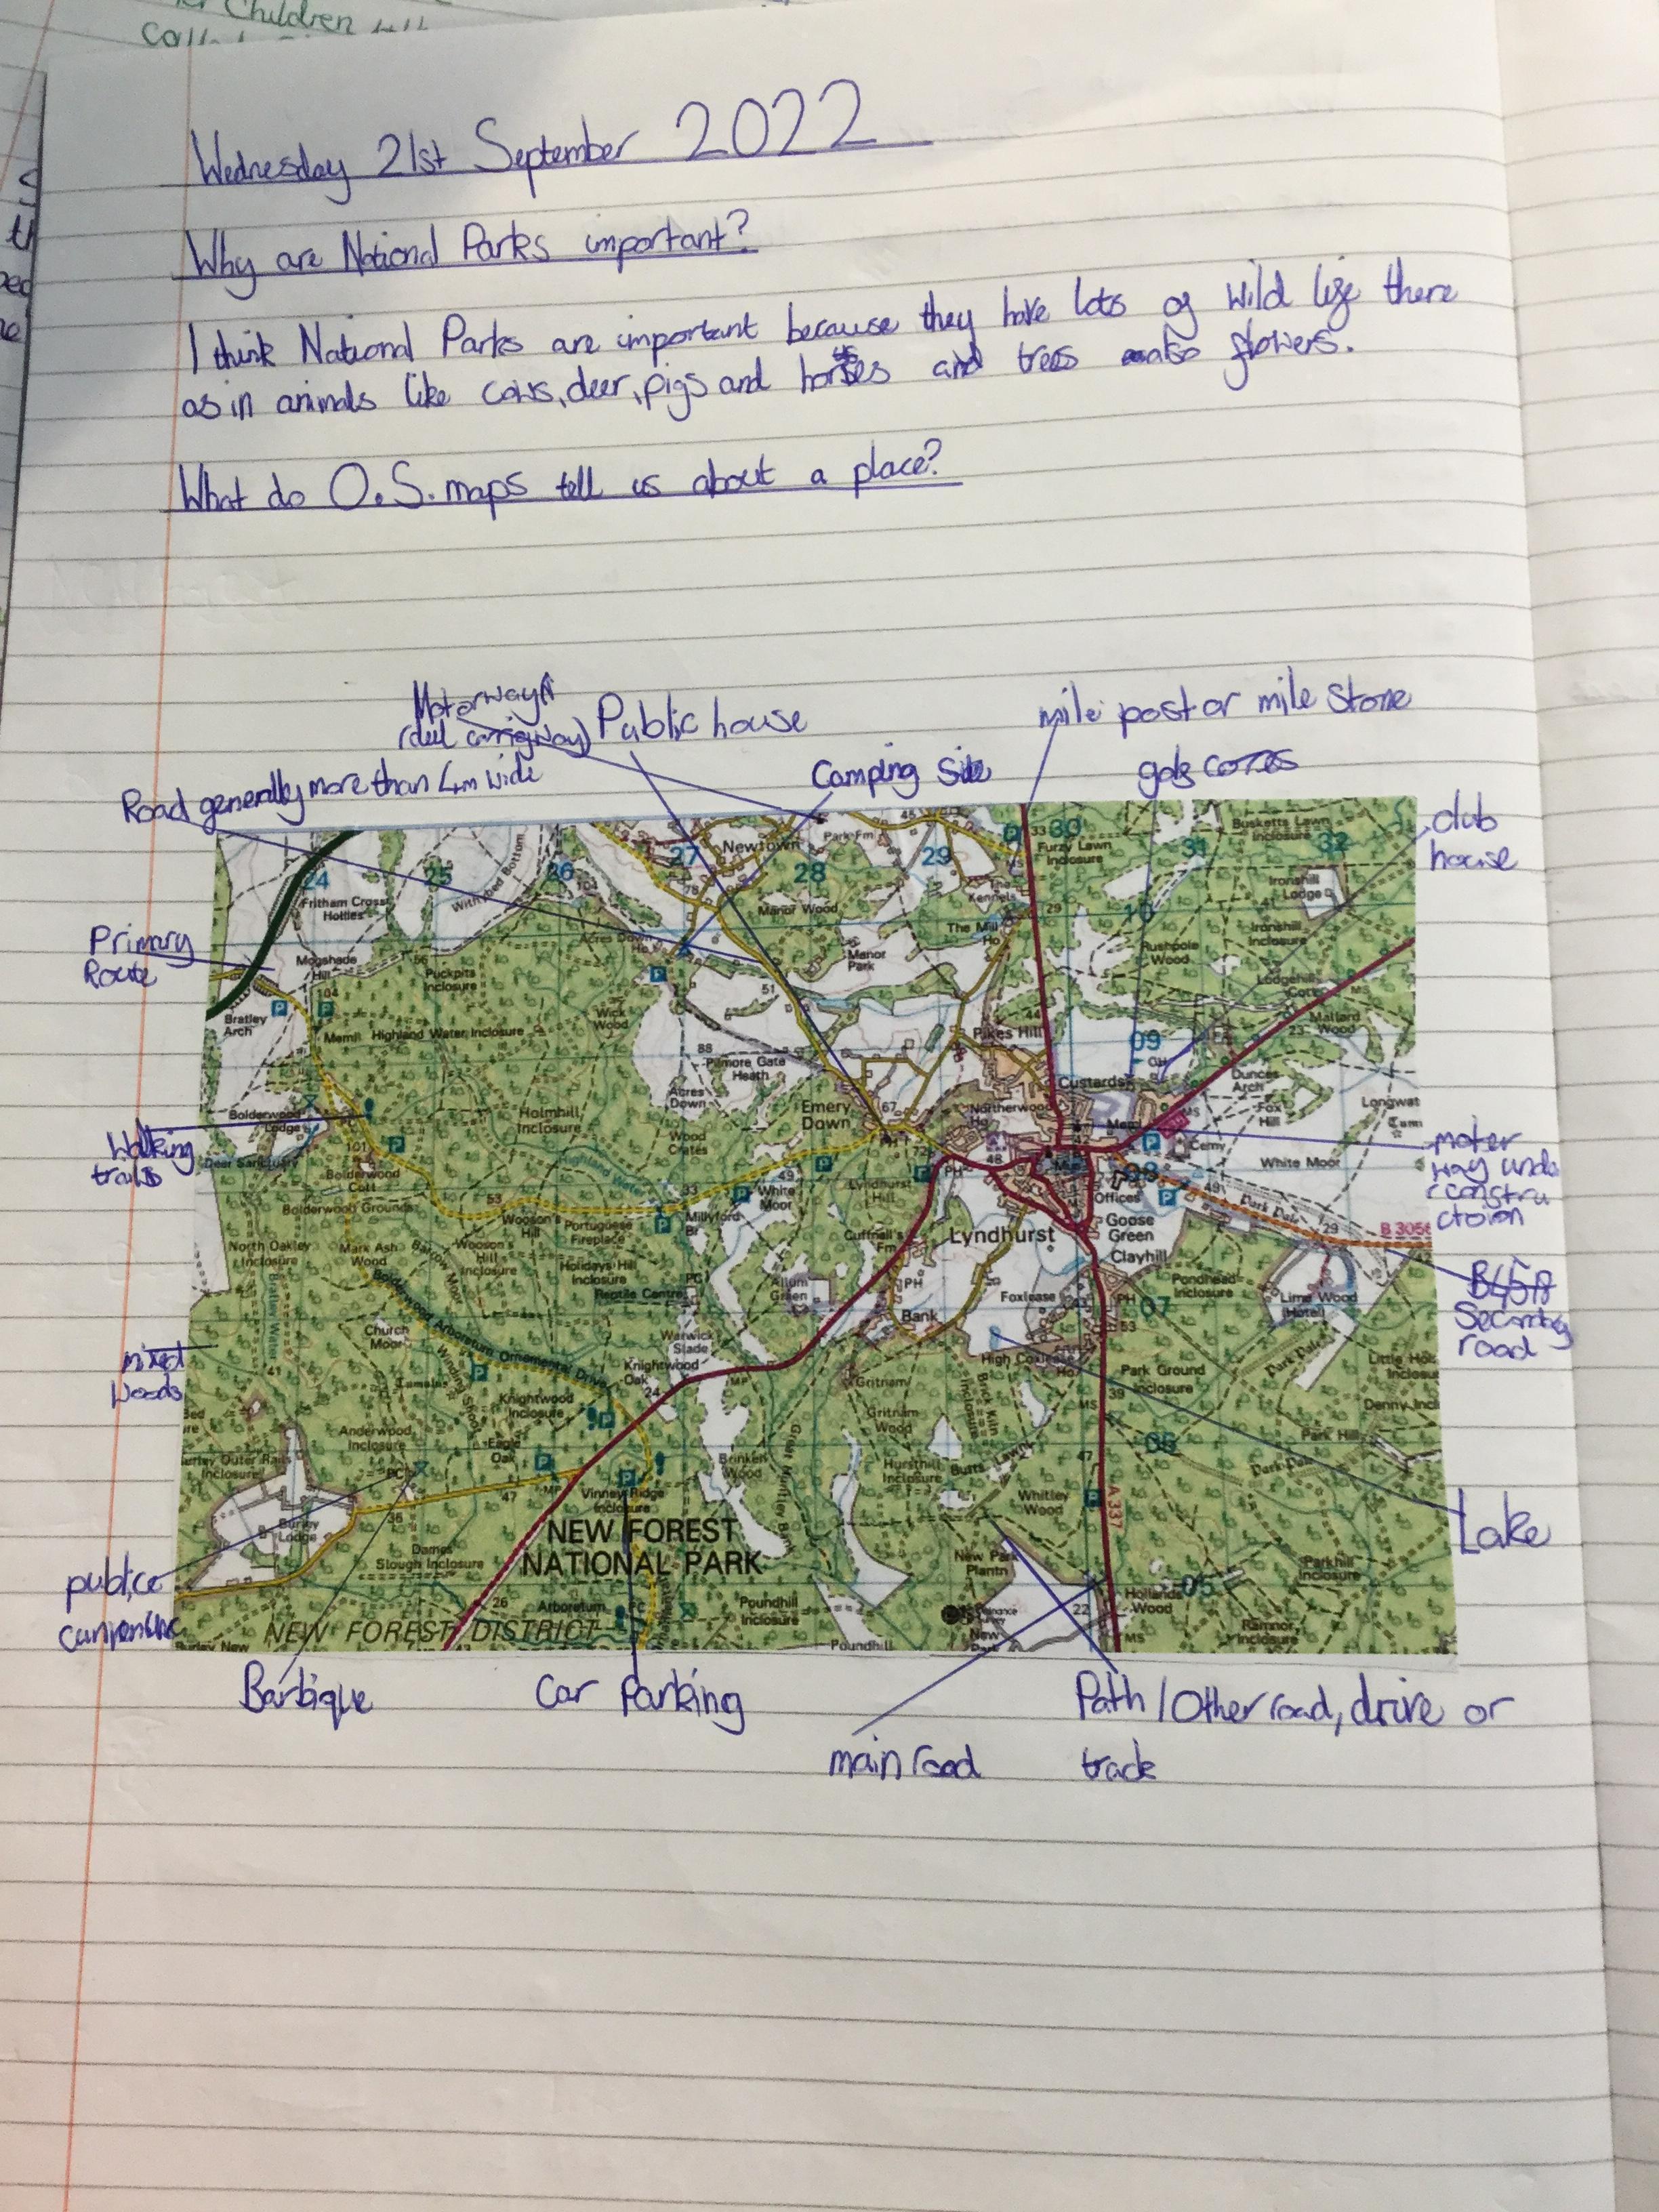 Children
Wednesday 21st September 2022
Why are National Parks important?
I think National Parks are important because they have lots of wild life there
as in animals like cows, deer, pigs and horses and trees also flowers.
What do O.S. maps tell us about a place?
Motorway
Public house
mile post or mile Stone
Road generally more than 4m wide
Camping Site
club
house
Primary
Route
Walking
trails
mixed
woods
Secondary
road
Lake
Barbique
Car Parking
main road
Path / Other road, drive or
track
24
25
26
27
28
29
30
31
32
Newtown
Park Fm
Furzy Lawn
Inclosure
Busketts Lawn
Inclosure
Fritham Cross
Hollies
Withybed Bottom
Manor Wood
The
Kennels
Ironshill
Lodge
Ironshill
Inclosure
The Mill
Ho
Manor
Park
Rushpole
Wood
Mogshade
Hill
Puckpits
Inclosure
Acres Down
Ho
Bratley
Arch
Meml
Highland Water Inclosure
Wick
Wood
Pikes Hill
Mallard
Wood
09
Pilmore Gate
Heath
Acres
Down
Custards
Dunces
Arch
Fox
Hill
Longwat
Bolderwood
Lodge
Holmhill
Inclosure
Emery
Down
Northerwood
Ho
Meml
Cemy
Deer Sanctuary
Bolderwood
Cott
Wood
Crates
Highland Water
White Moor
Bolderwood Grounds
Millyford
Br
White
Moor
Lyndhurst
Hill
PH
Offices
08
Park Pale
Wooson's
Hill
Portuguese
Fireplace
Goose
Green
Lyndhurst
B 3056
North Oakley
Inclosure
Mark Ash
Wood
Barrow Moor
Wooson's
Hill
Inclosure
Holidays Hill
Inclosure
Reptile Centre
Cuffnall's
Fm
Clayhill
Bratley Water
Allum
Green
PH
Foxlease
PH
Pondhead
Inclosure
07
Lime Wood
(Hotel)
Bolderwood Arboretum Ornamental Drive
Bank
Church
Moor
Warwick
Slade
High Coxlease
Ho
Park Ground
Inclosure
Park Pale
Knightwood
Oak
Gritnam
Knightwood
Inclosure
Gritnam
Wood
Brick Kiln
Inclosure
Denny Incl
Anderwood
Inclosure
Eagle
Oak
Brinken
Wood
Hursthill
Inclosure
Butts Lawn
06
Park Hill
Park Pale
Burley Outer Rails
Inclosure
Vinney Ridge
Inclosure
Whitley
Wood
A 337
Burley
Lodge
Dames
Slough Inclosure
NEW FOREST
NATIONAL PARK
New Park
Plantn
Parkhill
Inclosure
Hollands
Wood
05
Arboretum
Poundhill
Inclosure
Ramnor
Inclosure
NEW FOREST DISTRICT
Burley New
Poundhill
New
MS